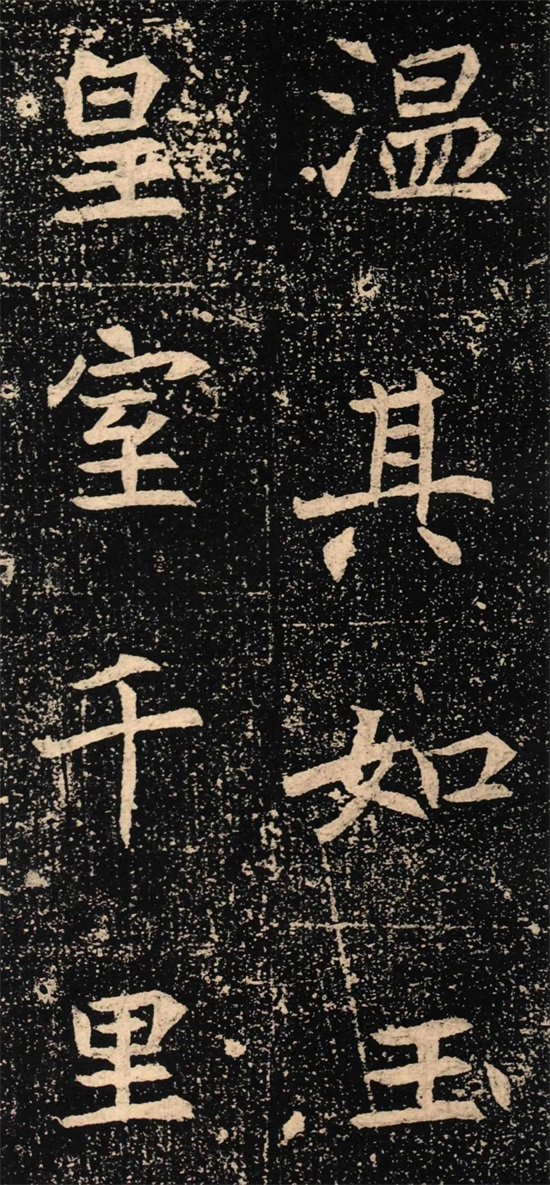 温其如玉
皇室千里